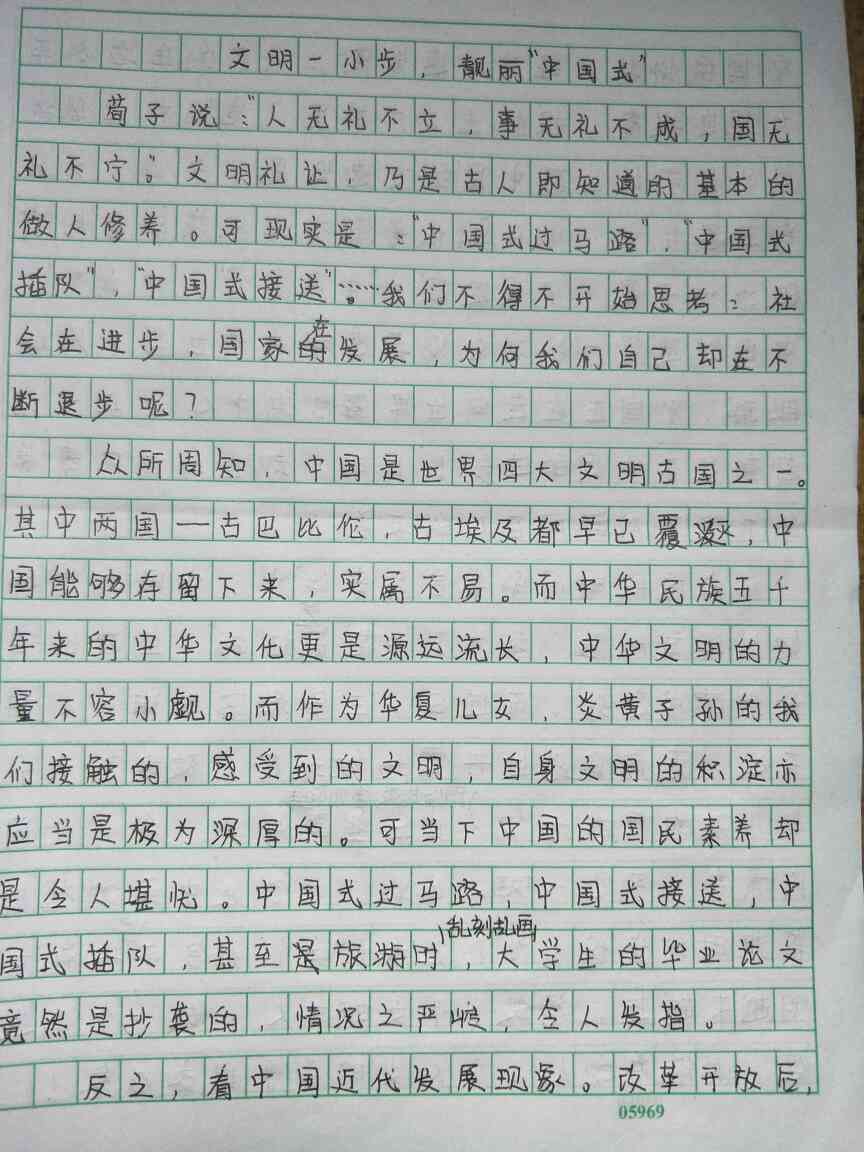 文明一小步，靓丽“中国式”
荀子说：“人无礼不立，事无礼不成，国无
礼不宁。”文明礼让，乃是古人即知道的基本的
做人修养。可现实是：“中国式过马路”，“中国式
插队”，“中国式接送”……。我们不得不开始思考：社
会在进步，国家在发展，为何我们自己却在不
断退步呢？
众所周知，中国是世界四大文明古国之一。
其中两国——古巴比伦，古埃及都早已覆，中
国能够存留下来，实属不易。而中华民族五千
年来的中华文化更是源远流长，中华文明的力
量不容小觑。而作为华夏儿女，炎黄子孙的我
们接触的，感受到的文明，自身文明的积淀亦
应当是极为深厚的。可当下中国的国民素养却
是令人堪忧。中国式过马路，中国式接送，中
国式插队，甚至是旅游时乱刻乱画，大学生的毕业论文
竟然是抄袭的，情况之严峻，令人发指。
反之，看中国近代发展现象。改革开放后，
05969